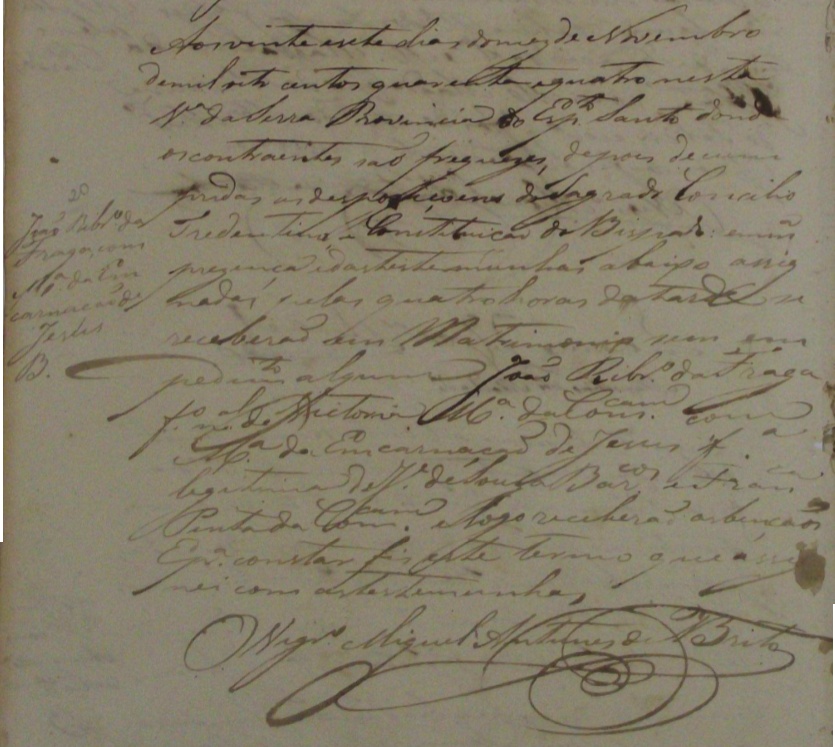 Aos vinte e sete dias do mez de Novembro
de mil oito centos quarenta e quatro nesta
V.ª da Serra Provincia do Esp.to Santo dond
os contraentes saõ freguezes, depois de cum
pridas as desposiçoens do Sagrado Concilio
Tredentino, e Constituicaõ do Bispado: em m
prezenca e das testemunhas abaixo assig
nadas, pelas quatro horas da tarde se
receberaõ em Matrimonio sem em
pedim.to algum João Ribr.º da Fraga
f.º n.al de Victoria M.ª da Conc.cam com
M.ª da Encarnaçaõ de Jesus f.ª
legitima de J.e de Souza Bar.cos e Fran.ca
Pinta da Con.cam e logo receberaõ as bencaõs
E p.ª constar fis este termo que assig
nei com as testemunhas
O Vigr.º Miguel Antunes de Brito
2º
João Ribr.º da
Fraga, com
M.ª da En
carnacaõ de
Jesus
B.